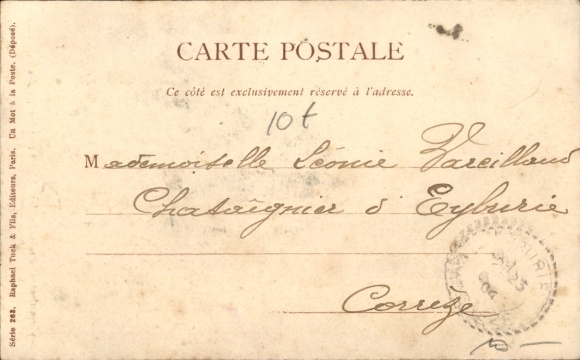 CARTE POSTALE
Ce côté est exclusivement réservé à l'adresse.
10t
Mademoiselle Léonie Vareillaud
Chataîgnier d'Eyburie
Corrèze
Série 263. Raphael Tuck & Fils, Editeurs, Paris. Un Mot à la Poste. (Déposé).